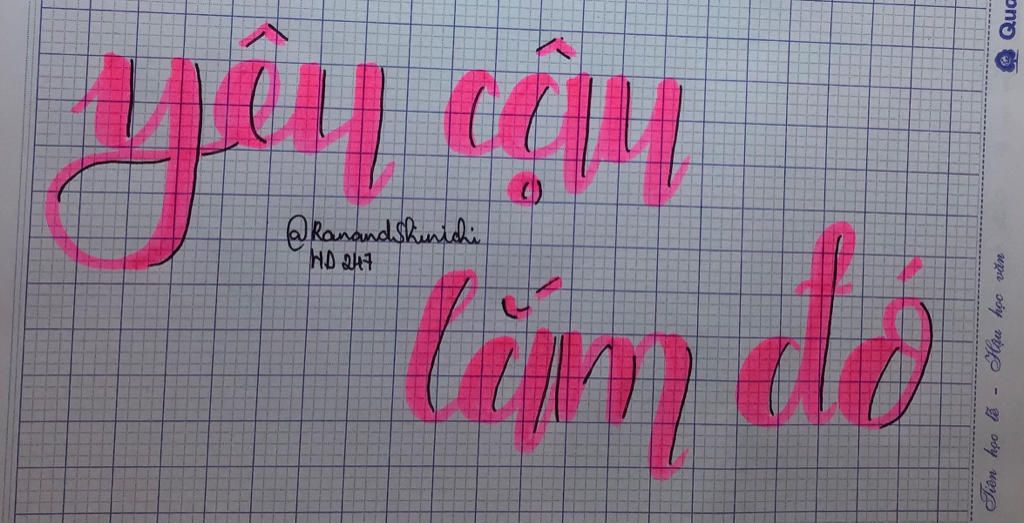 yêu cậu
@RanandShinichi
HD 247
lắm đó
Tiên học lễ - Hậu học văn